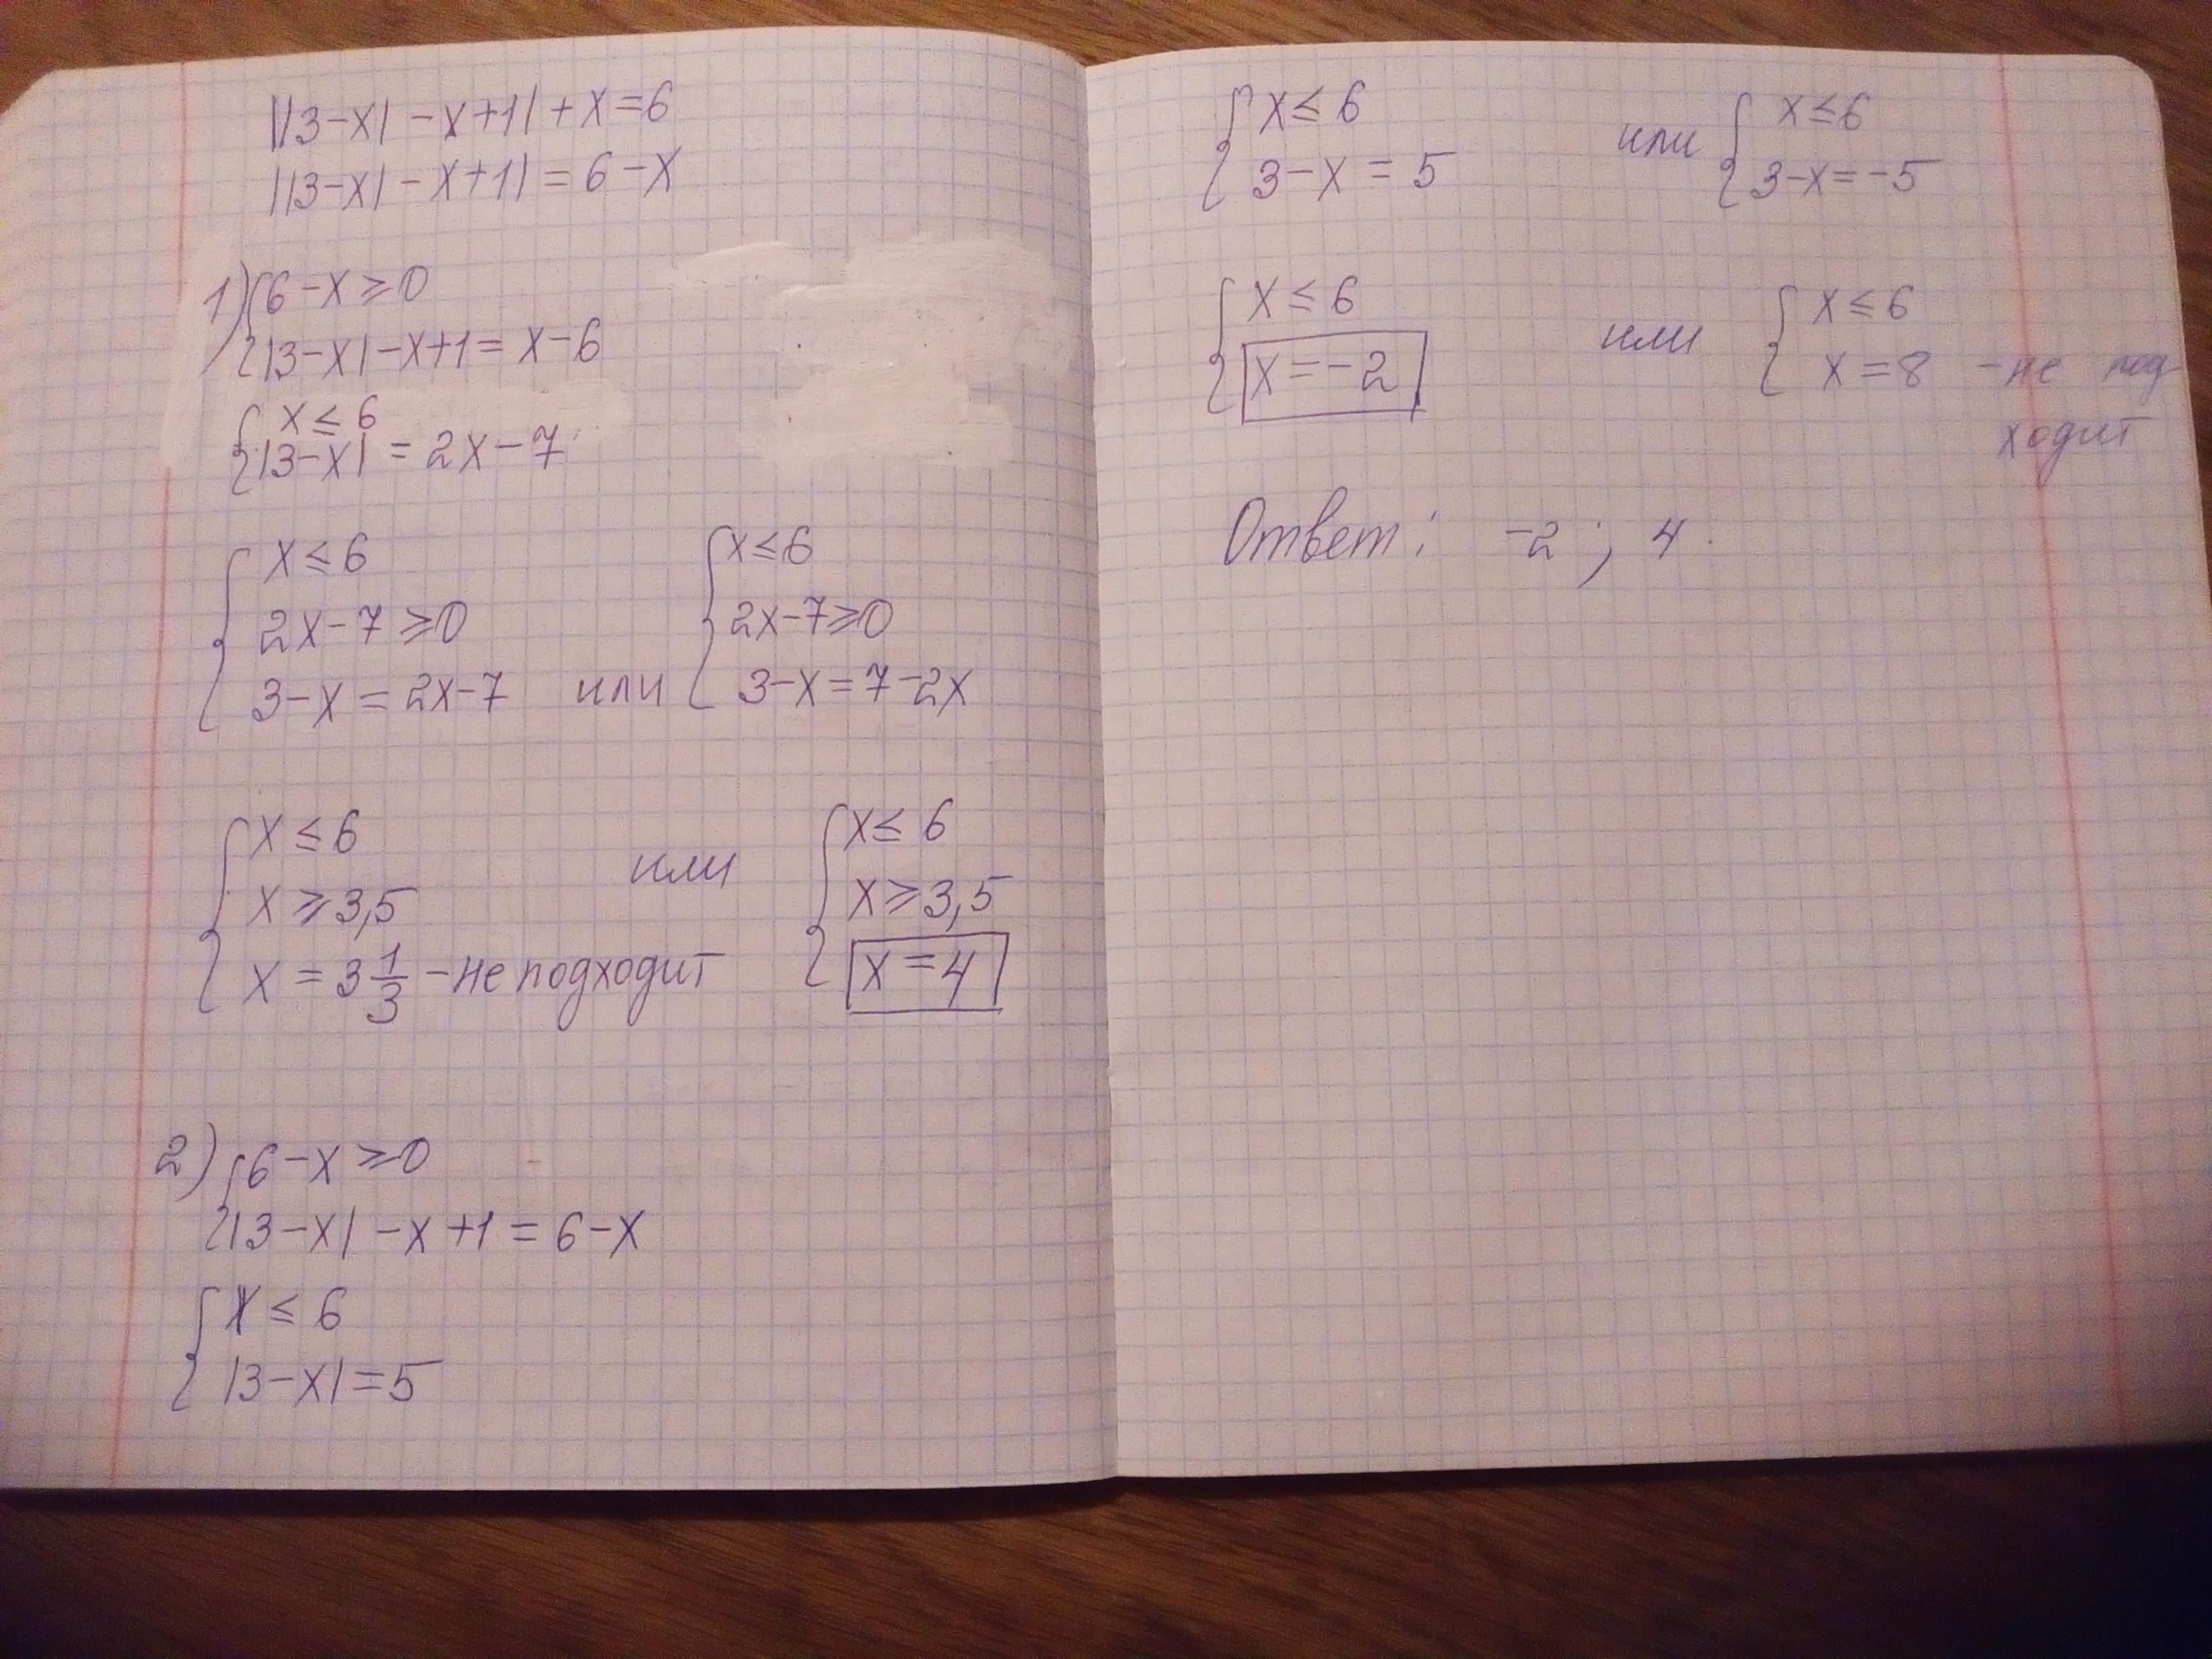 ||3-x| - x+1| + x = 6
||3-x| - x+1| = 6 - x
1) { 6-x ≥ 0
|3-x| - x+1 = x-6
{ x ≤ 6
|3-x| = 2x-7
{ x ≤ 6
2x-7 ≥ 0
3-x = 2x-7
или
{ x ≤ 6
2x-7 ≥ 0
3-x = 7-2x
{ x ≤ 6
x ≥ 3,5
x = 3 1/3 - не подходит
или
{ x ≤ 6
x ≥ 3,5
x = 4
2) { 6-x ≥ 0
|3-x| - x+1 = 6-x
{ x ≤ 6
|3-x| = 5
{ x ≤ 6
3-x = 5
или
{ x ≤ 6
3-x = -5
{ x ≤ 6
x = -2
или
{ x ≤ 6
x = 8 - не под
ходит
Ответ: -2; 4.